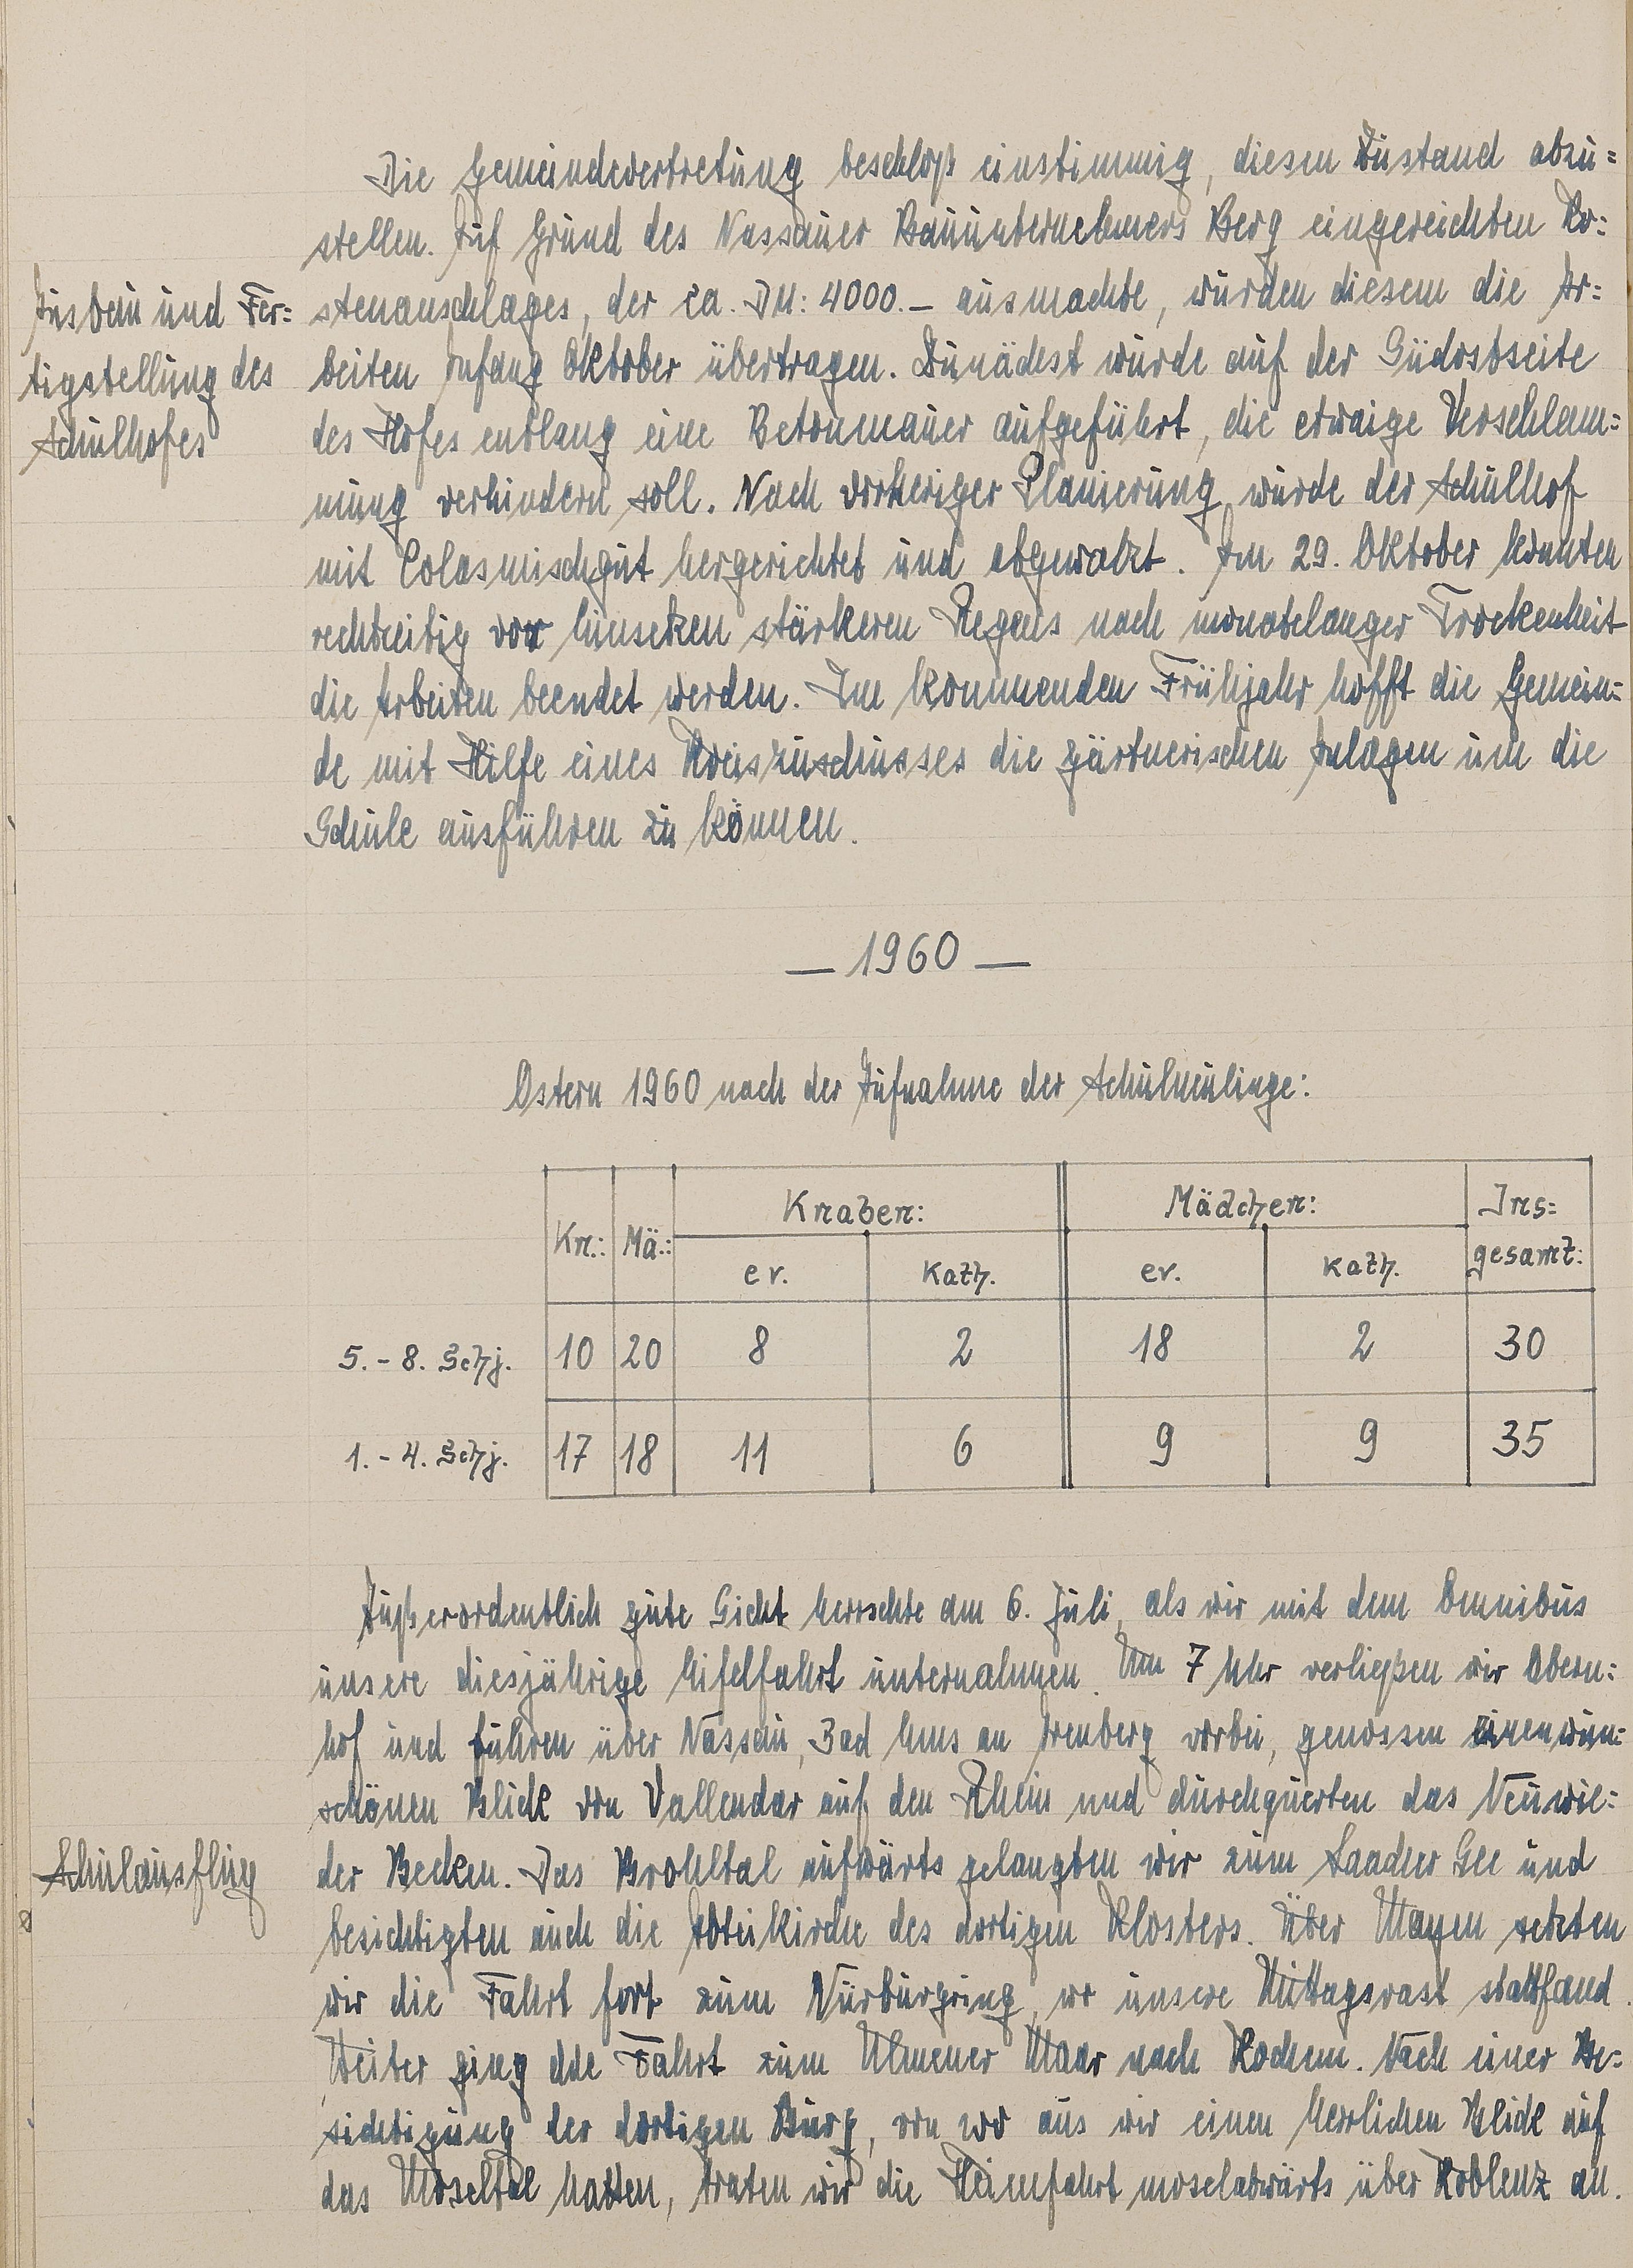 Die Gemeindevertretung beschloß einstimmig, diesen Zustand abzu=
stellen. Auf Grund des Nassauer Bauunternehmers Berg eingereichten Ko=
Ausbau und Fer=
tigstellung des
Schulhofes
stenanschlages, der ca. DM: 4000.- ausmachte, wurden diesem die Ar=
beiten Anfang Oktober übertragen. Zunächst wurde auf der Südostseite
des Hofes entlang eine Betonmauer aufgeführt, die etwaige Verschlam=
mung verhindern soll. Nach vorheriger Planierung wurde der Schulhof
mit Colasmischgut hergerichtet und abgewalzt. Am 29. Oktober konnten
rechtzeitig vor Einsetzen stärkeren Regens nach monatelanger Trockenheit
die Arbeiten beendet werden. Im kommenden Frühjahr hofft die Gemein=
de mit Hilfe eines Kreiszuschusses die gärtnerischen Anlagen um die
Schule ausführen zu können.
— 1960 —
Ostern 1960 nach der Aufnahme der Schulneulinge:
Kn.: Mä.: Knaben: Mädchen: Ins=
gesamt:
ev. kath. ev. kath.
5.-8. Schj. 10 20 8 2 18 2 30
1.-4. Schj. 17 18 11 6 9 9 35
Außerordentlich gute Sicht herrschte am 6. Juli, als wir mit dem Omnibus
unsere diesjährige Eifelfahrt unternahmen. Um 7 Uhr verließen wir Obern=
hof und fuhren über Nassau, Bad Ems an Arenberg vorbei, genossen einen wun=
schönen Blick von Vallendar auf den Rhein und durchquerten das Neuwie=
Schulausflug
der Becken. Das Brohltal aufwärts gelangten wir zum Laacher See und
besichtigten auch die Abteikirche des dortigen Klosters. Über Mayen setzten
wir die Fahrt fort zum Nürburgring, wo unsere Mittagsrast stattfand.
Weiter ging die Fahrt zum Ulmener Maar nach Kochem. Nach einer Be=
sichtigung der dortigen Burg, von wo aus wir einen herrlichen Blick auf
das Moseltal hatten, traten wir die Heimfahrt moselabwärts über Koblenz an.